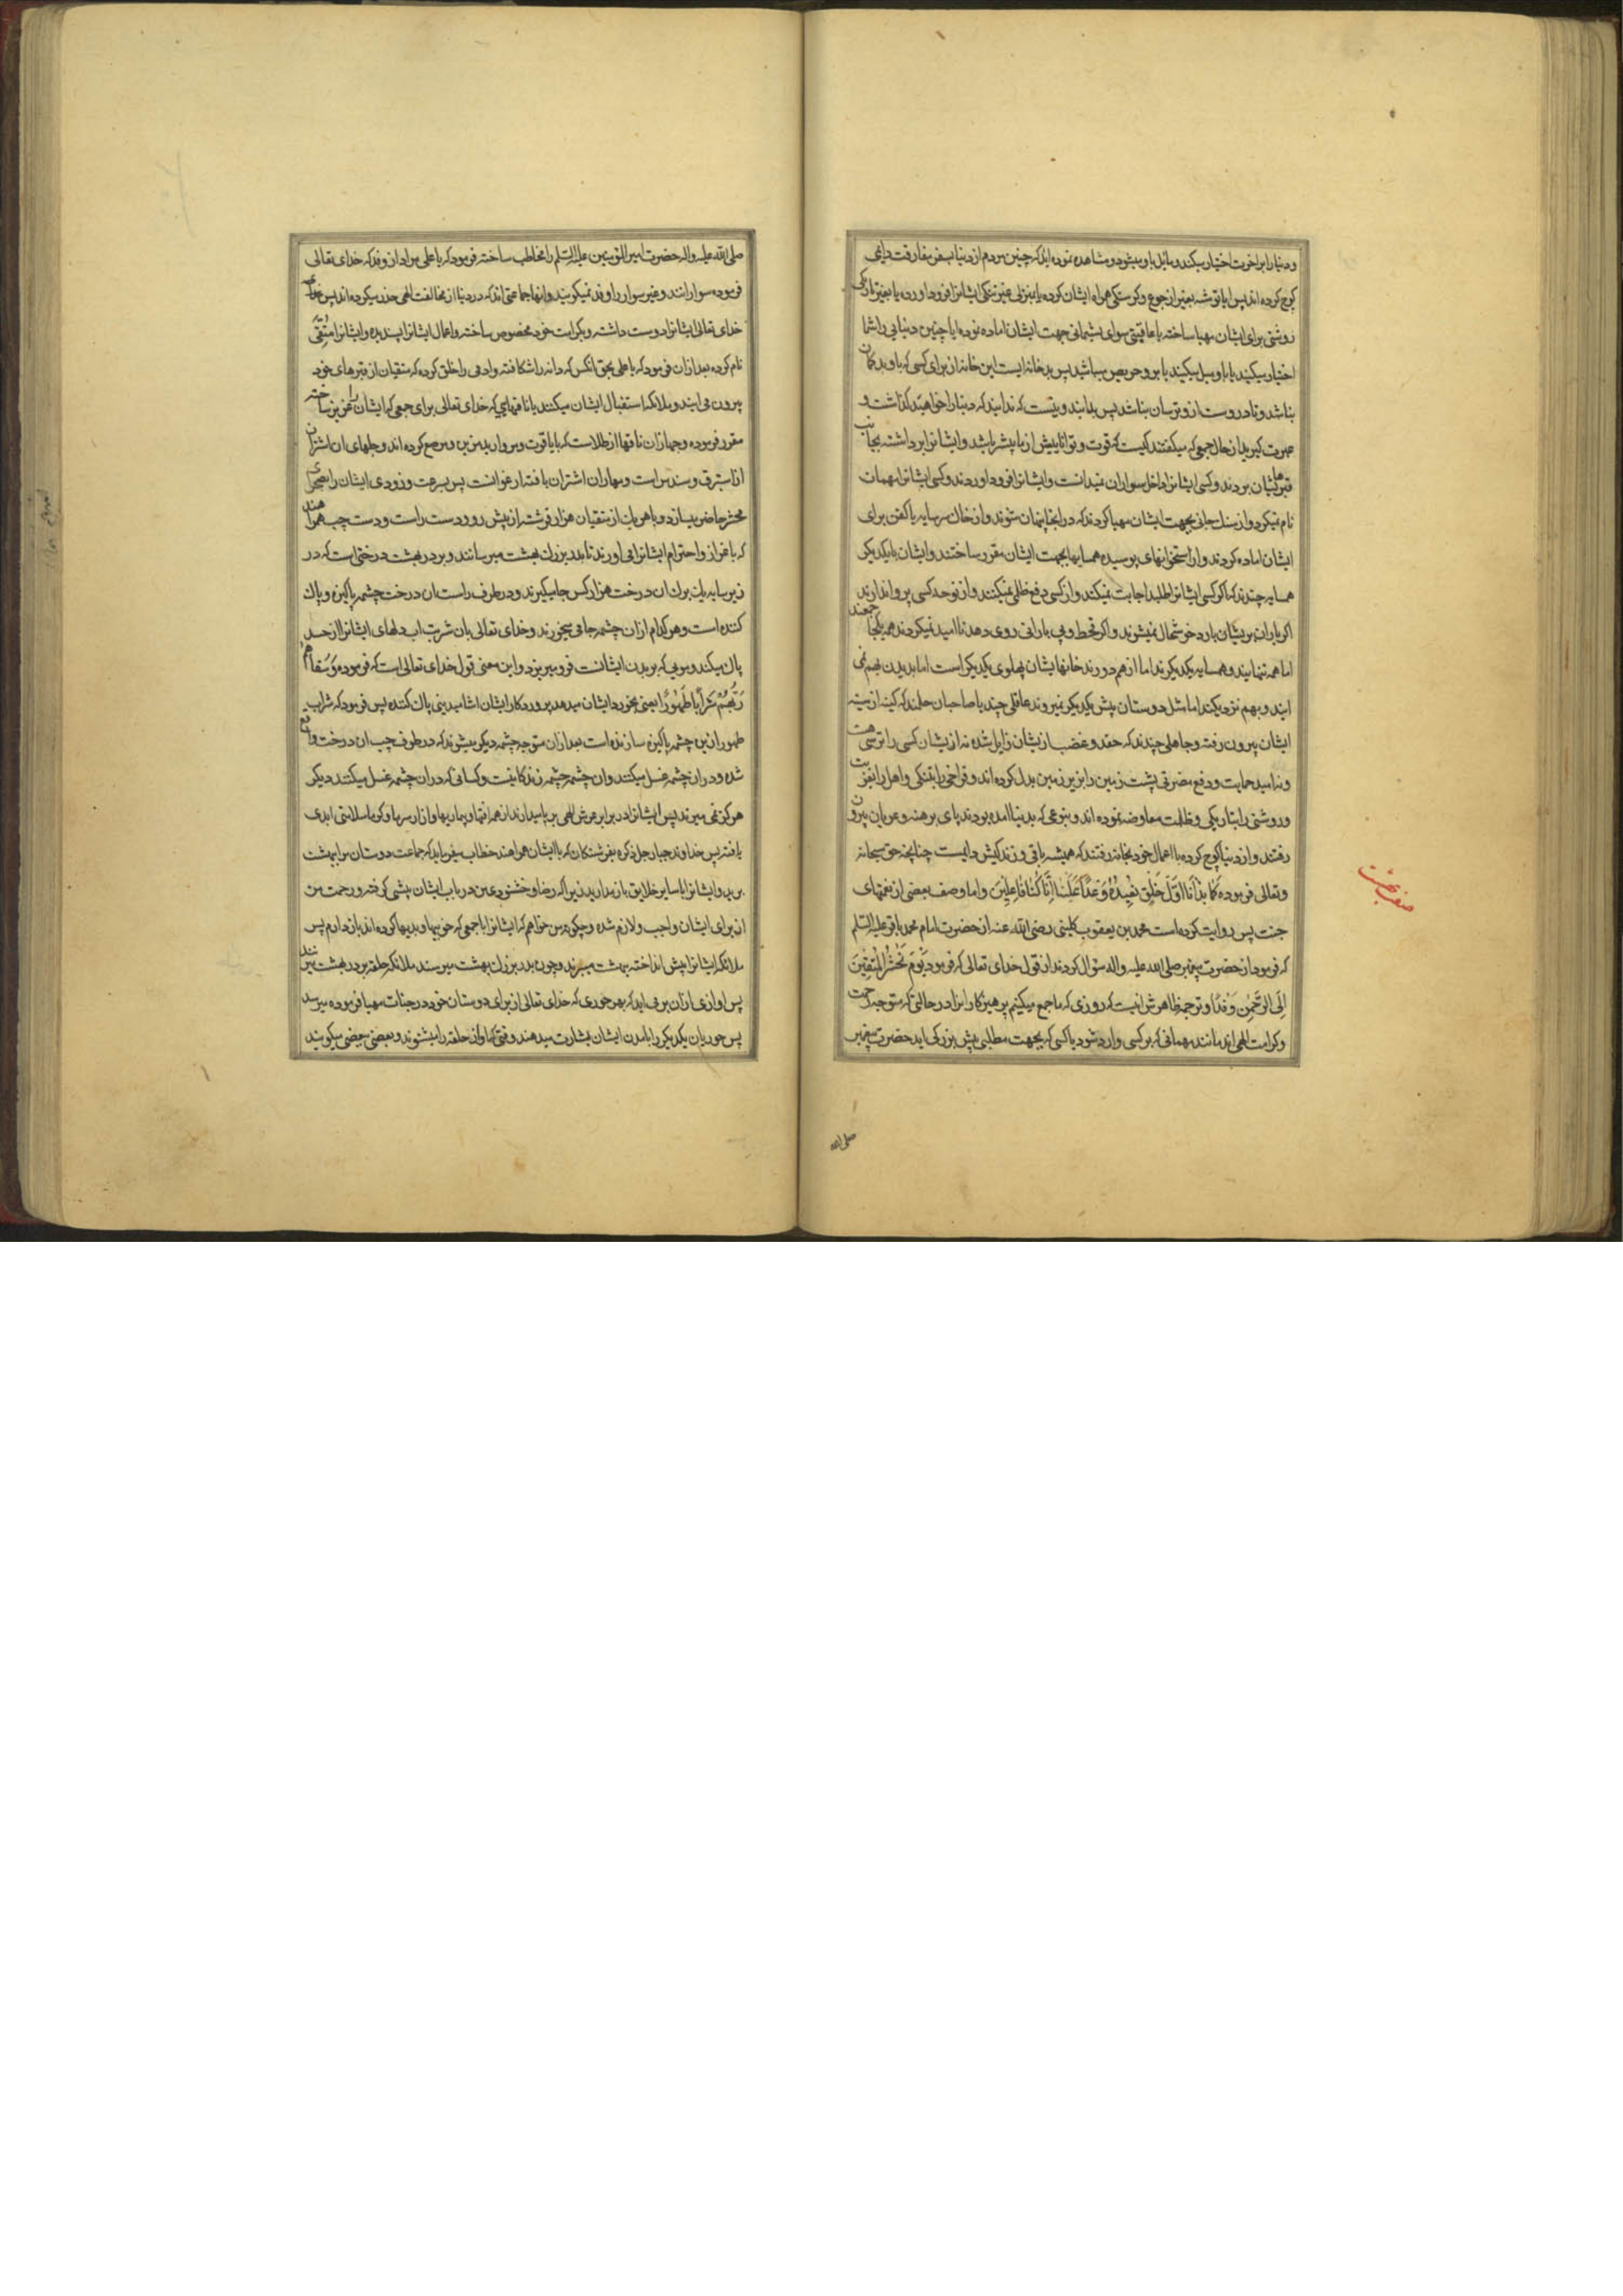 و دنیا را بر اخرت اختیار میکند و مایل باو میشود و مشاهده نموده اید که چنین مردم از دنیا بسفر مفارقت دایمی
کوچ کرده اند پس ایا توشه بغیر از جوع و کرسنکی همراه ایشان کرده یا بمنزلی غیر تنکی ایشانرا فرود اورده یا بغیر تاریکی
روشنی برای ایشان مهیا ساخته یا عاقبتی سوای پشیمانی جهت ایشان اماده نموده ایا چنین دنیایی را شما
اختیار میکنید یا باو میل میکنید یا برو حریص میباشید پس بد خانه ایست این خانه از برای کسی که باو بدکمان
نباشد و تا در وست ازو ترسان نباشد پس بدانید و نیست که ندانید که دنیا را خواهید کذاشت و
عبرت کیرید از حال جمعی که میکفتند کیست که قوت و توانایییش از ما پیشتر باشد و ایشانرا برداشته بجانب
قبرهاشان بردند و کسی ایشانرا داخل سواران نمیدانست و ایشانرا فرود اوردند و کسی ایشانرا مهمان
نام نمیکرد و از سنک جائی بجهت ایشان مهیا کردند که در انجا پنهان شوند و از خاک سرمایه یا کفن برای
ایشان اماده کردند و از استخوانهای پوسیده همسایها بجهت ایشان مقرر ساختند و ایشان با یکدیکر
همسایه چندند که اکر کسی ایشانرا طلبد اجابت نمیکند و از کسی دفع ظلمی نمیکنند و از نوحه کسی پروا ندارند
اکر باران بریشان بارد خوشحال نمیشوند و اکر قحط و بی بارانی روی دهد ناامید نمیکردند همه یکجا جمعند
اما همه تنهایند و همسایه یکدیکرند اما از هم دورند خانهایشان پهلوی یکدیکر است اما بدیدن بهم نمی
ایند و بهم نزدیکند اما مثل دوستان پیش یکدیکر نمیروند عاقلی چند با صاحبان حلمند که کینه از سینه
ایشان بیرون رفته و جاهلی چندند که حقد و غضب از یشان زایل شده نه از یشان کسی را ترسی هست
و نه امید حمایت و دفع مضرتی پشت زمین را بزیر زمین بدل کرده اند و فراخی را بتنکی و اهل را بغربت
و روشنی را بتاریکی و ظلمت معاوضه نموده اند و بنوعی که بدنیا امده بودند پای برهنه و عریان بیرون
رفتند و از دنیا کوچ کرده با اعمال خود بخانه رفتند که همیشه باقی و زندکیش دایست چنانچه حق سبحانه
و تعالی فرموده کَمٰا بَدَأْنٰا اَوَّلَ خَلْقٍ نُعیدُهُ وَعْداً عَلَیْنٰا اِنّٰا کُنّٰا فٰاعِلینَ و اما وصف بعضی از نعمتهای
جنت پس روایت کرده است محمد بن یعقوب کلینی رضی الله عنه از حضرت امام محمد باقر علیه السلم
که فرمود از حضرت پیغمبر صلی الله علیه و اله سؤال کردند از قول خدای تعالی که فرمود یَوْمَ نَحْشُرُ الْمُتَّقینَ
اِلَی الرَّحْمٰنِ وَفْداً و ترجمه ظاهرش انیست که روزی که ما جمع میکنیم پرهیزکارانرا در حالتی که متوجه رحمت
و کرامت الهی اند مانند مهمانی که بر کسی وارد شود یا کسی که بجهت مطلبی پیش بزرکی اید حضرت پیغمبر
صلی الله
صفت بهشت
صلی الله علیه و اله حضرت امیر المؤمنین علیه السلم را مخاطب ساخته فرمود که یا علی مراد از وفد که خدای تعالی
فرموده سوارانند و غیر سوار را وفد نمیکویند و انها جماعتی اند که در دنیا از مخالفت الهی حذر میکرده اند پس
خدای تعالی ایشانرا دوست داشته و بکرامت خود مخصوص ساخته و اعمال ایشانرا پسندیده و ایشانرا مُتَّقی
نام کرده بعد از ان فرمود که یا علی بحق انکس که دانه را شکافته و ادمی را خلق کرده که متقیان از قبرهای خود
بیرون می ایند و ملائکه استقبال ایشان میکنند با ناقهایی که خدای تعالی برای جمعی که ایشان را عزیز ساخته
مقرر فرموده و جهازان ناقها از طلاست که با یاقوت و مروارید مزین و مرصع کرده اند و جلهای ان اشتران
از استبرق و سندس است و مهاران اشتران بافته ارغوانست پس بسرعت و زودی ایشان را بصحرای
محشر حاضر میسازد و با هر یک از متقیان هزار فرشته از پیش رو و دست راست و دست چپ همراهند
که باعزاز و احترام ایشانرا می اورند تا بدر بزرک بهشت میرسانند و بر در بهشت درختی است که در
زیر سایه یک برک ان درخت هزار کس جا میکیرند و در طرف راست ان درخت چشمه پاکیزه و پاک
کننده است و هر کدام از ان چشمه جامی میخورند و خدای تعالی بان شربت اب دلهای ایشانرا از حسد
پاک میکند و مویی که بر بدن ایشانست فرو میریزد و این معنی قول خدای تعالی است که فرموده وَ سَقٰاهُمْ
رَبُّهُمْ شَرٰاباً طَهُوراً یعنی بخورد ایشان میدهد پروردکار ایشان اشامیدنی پاک کننده پس فرمود که شراب
طهور از ین چشمه پاکیزه سازنده است بعد از ان متوجه چشمه دیکر میشوند که در طرف چپ ان درخت واقع
شده و در ان چشمه غسل میکنند و ان چشمه چشمه زندکانیست و کسانی که در ان چشمه غسل میکنند دیکر
هرکز نمی میرند پس ایشانرا در برابر عرش الهی بر پا میدارند از همه افتها و بیماریها و ازار سرما و کرما سلامتی ابدی
یافته پس خداوند جبار جل ذکره بفرشتکان که با ایشان همراهند خطاب میفرماید که جماعت دوستان مرا ببهشت
برید و ایشانرا با سایر خلایق باز مدارید زیرا که رضا و خشنودی من در باب ایشان پیشی کرفته و رحمت من
از برای ایشان واجب و لازم شده و چکونه من خواهم که ایشانرا با جمعی که خوبیها و بدیها کرده اند باز دارم پس
ملائکه ایشانرا پیش انداخته ببهشت میبرند و چون بدر بزرک بهشت میرسند ملائکه حلقه بر در بهشت میزنند
پس اوازی از ان بر می اید که بهر حوری که خدای تعالی از برای دوستان خود در جنات مهیا فرموده میرسد
پس حوریان یکدیکر را بامدن ایشان بشارت میدهند وقتی که اواز حلقه را میشنوند و بعضی ببعضی میکویند